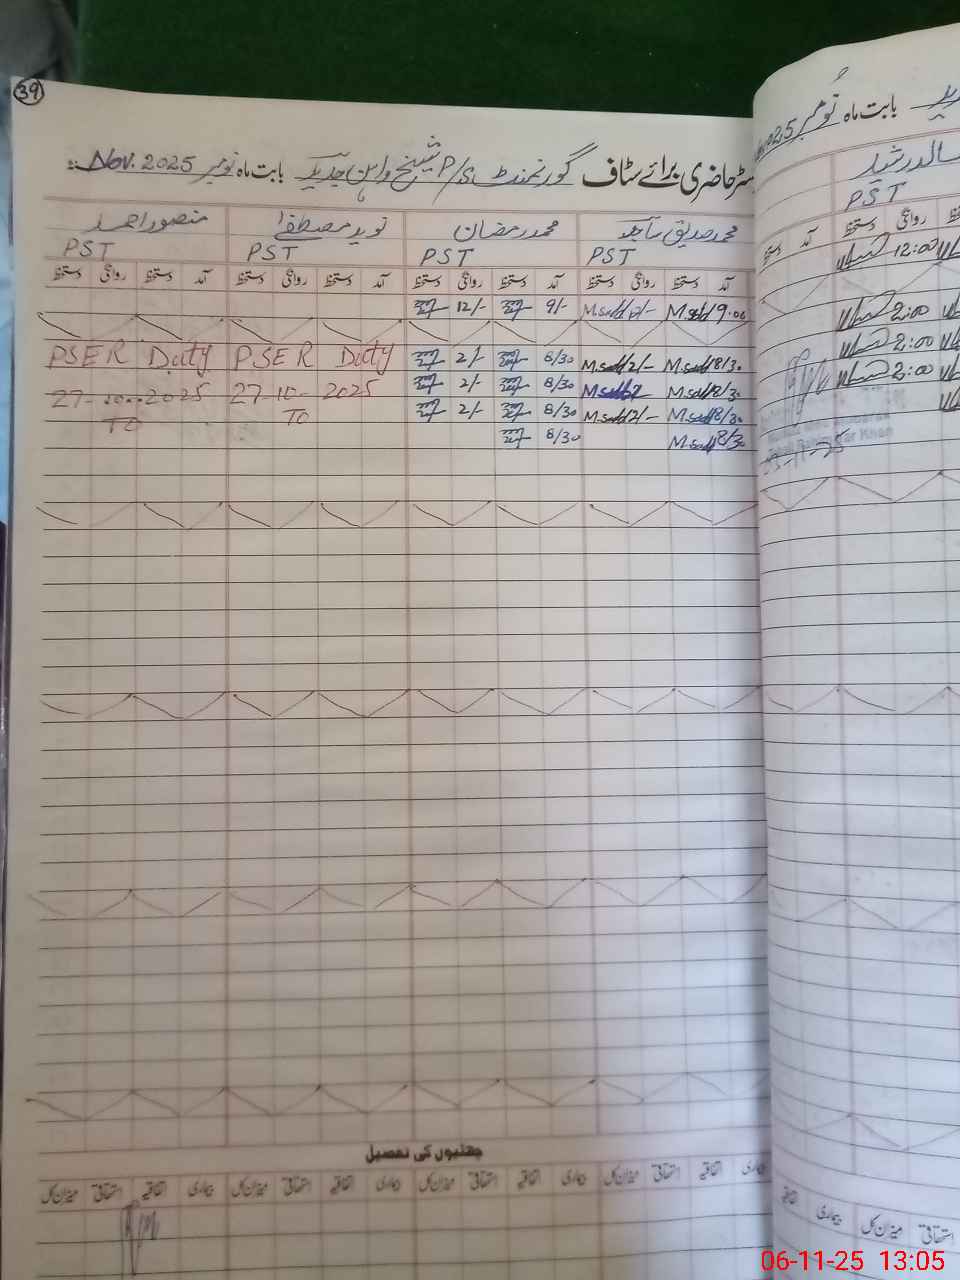 39
رجسٹر حاضری برائے سٹاف گورنمنٹ P/S شیخ واہن جدید بابت ماہ نومبر Nov. 2025
محمد صدیق ساجد محمد رمضان نوید مصطفیٰ منصور احمد
PST PST PST PST
آمد دستخط روانگی دستخط آمد دستخط روانگی دستخط آمد دستخط روانگی دستخط آمد دستخط روانگی دستخط
12/- 9/- M.sdd 9.00
PSER Duty PSER Duty 2/- 8/30 M.sdd 2/- M.sdd 8/30
27-10-2025 27-10-2025 2/- 8/30 M.sdd M.sdd 8/30
TO TO 2/- 8/30 M.sdd 2/- M.sdd 8/30
8/30 M.sdd 8/30
چھٹیوں کی تفصیل
بیماری اتفاقیہ استحقاقی میزان کل بیماری اتفاقیہ استحقاقی میزان کل بیماری اتفاقیہ استحقاقی میزان کل بیماری اتفاقیہ استحقاقی میزان کل
بابت ماہ نومبر 2025
PST
آمد دستخط روانگی دستخط
12:00
2:00
2:00
2:00
Khan
بیماری میزان کل استحقاقی
06-11-25 13:05